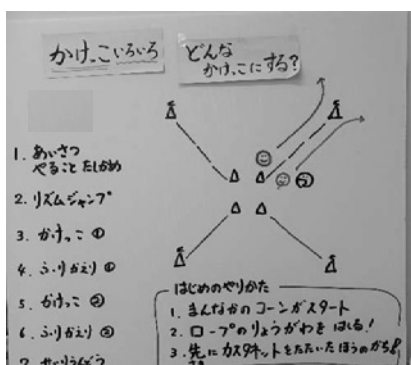 かけっこいろいろ
どんな
かけっこにする？
1. あいさつ
やること たしかめ
2. リズムジャンプ
3. かけっこ①
4. ふりかえり①
5. かけっこ②
6. ふりかえり②
7. せいりうんどう
はじめのやりかた
1. まんなかのコーンがスタート
2. ロープのりょうがわを はしる！
3. 先にカスタネットをたたいたほうのかち！